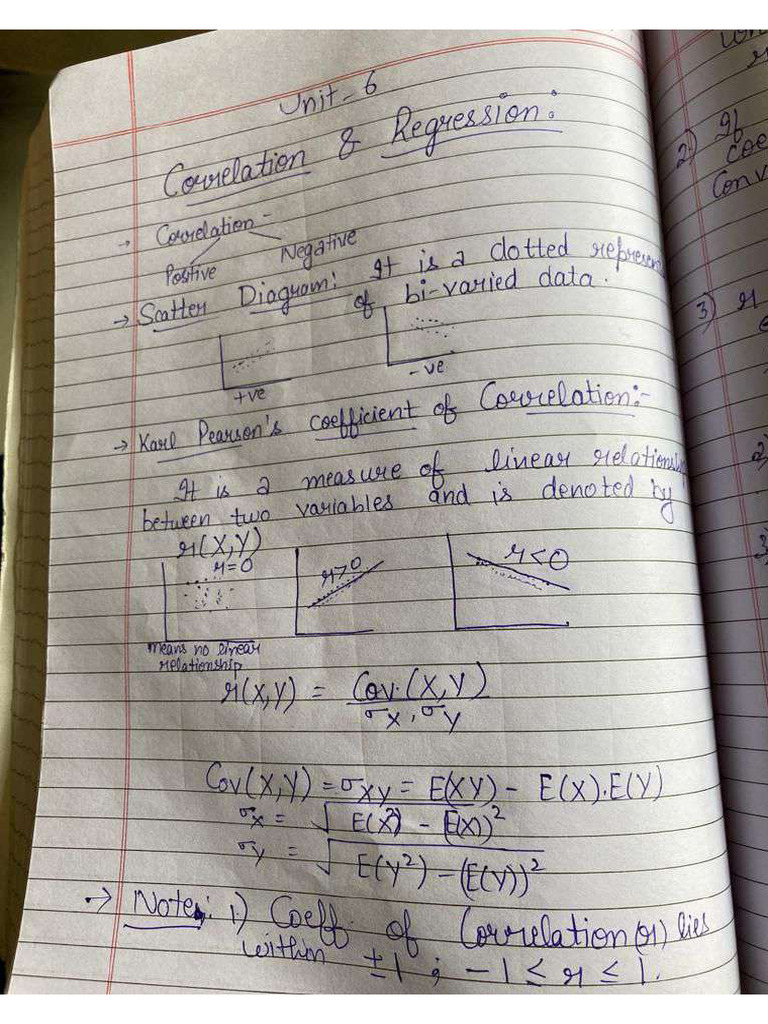 Unit-6
Correlation & Regression:
→ Correlation -
Positive Negative
→ Scatter Diagram: It is a dotted represen
of bi-varied data.
+ve
-ve
→ Karl Pearson's coefficient of Correlation:-
It is a measure of linear relations
between two variables and is denoted by
r(X,Y)
r=0
r>0
r<0
means no linear
relationship
r(X,Y) = Cov.(X,Y) / σX.σY
Cov(X,Y) = σXY = E(XY) - E(X).E(Y)
σx = √E(X²) - E(X))²
σy = √E(Y²) - (E(Y))²
→ Note: 1) Coeff. of Correlation(r) lies
within ±1 ; -1 ≤ r ≤ 1.
2) If
coe
Conv
3) r
2)
3)